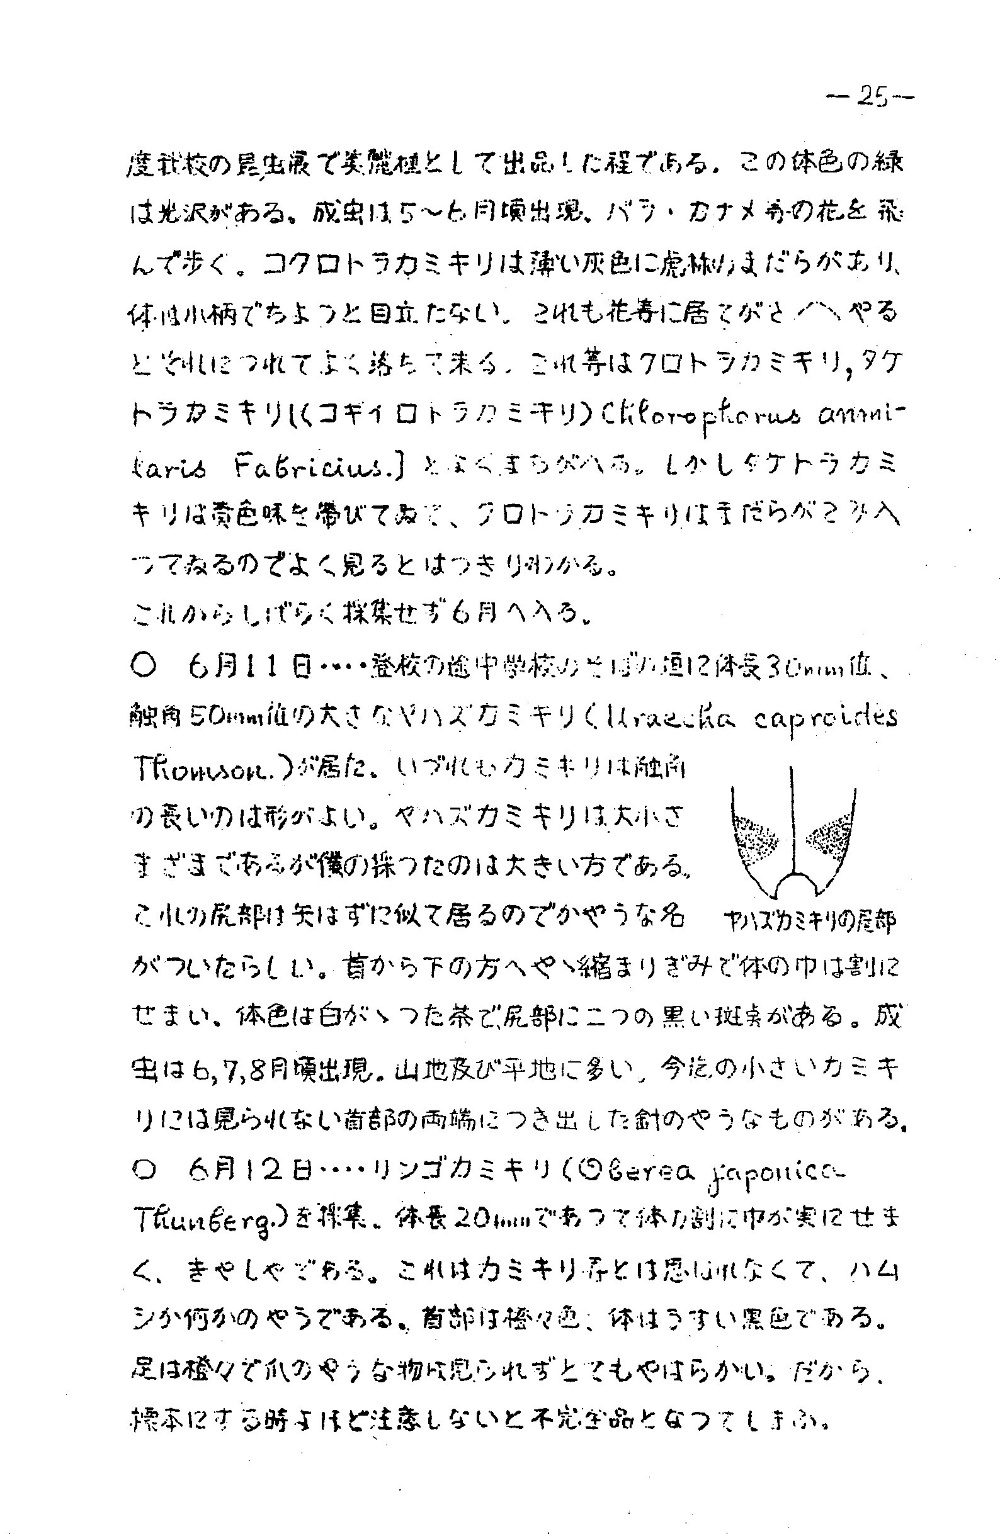 —25—
度我校の昆虫展で美麗種として出品した程である。この体色の緑
は光沢がある。成虫は5〜6月頃出現。バラ・カナメ等の花を飛
んで歩く。コクロトラカミキリは薄い灰色に虎柄のまだらがあり、
体は小柄でちょつと目立たない。これも花等に居てがさ／＼やる
とそれにつれてよく落ちて来る。これ等はクロトラカミキリ,タケ
トラカミキリ[(コギイロトラカミキリ)Chlorophorus annu-
laris Fabricius.]とよくまちがへる。しかしタケトラカミ
キリは黄色味を帯びてゐて、クロトラカミキリはまだらがこみ入
つてゐるのでよく見るとはつきりわかる。
これからしばらく採集せず6月へ入る。
○ 6月11日‥‥登校の途中学校のそばの垣に体長30mm位、
触角50mm位の大きなヤハズカミキリ(Uraecha caproides
Thomson.)が居た。いづれもカミキリは触角
の長いのは形がよい。ヤハズカミキリは大小さ
まざまであるが僕の採つたのは大きい方である。
これの尻部は矢はずに似て居るのでかやうな名
がついたらしい。首から下の方へやゝ縮まりぎみで体の巾は割に
せまい。体色は白がゝつた茶で尻部に二つの黒い斑点がある。成
虫は6,7,8月頃出現。山地及び平地に多い。今迄の小さいカミキ
リには見られない首部の両端につき出した針のやうなものがある。
ヤハズカミキリの尾部
○ 6月12日‥‥リンゴカミキリ(Oberea japonica
Thunberg.)を採集。体長20mmであつて体の割に巾が実にせま
く、きやしやである。これはカミキリ等とは思はれなくて、ハム
シか何かのやうである。首部は橙々色、体はうすい黒色である。
足は橙々で爪のやうな物は見られずとてもやはらかい。だから、
標本にする時よほど注意しないと不完全品となつてしまふ。